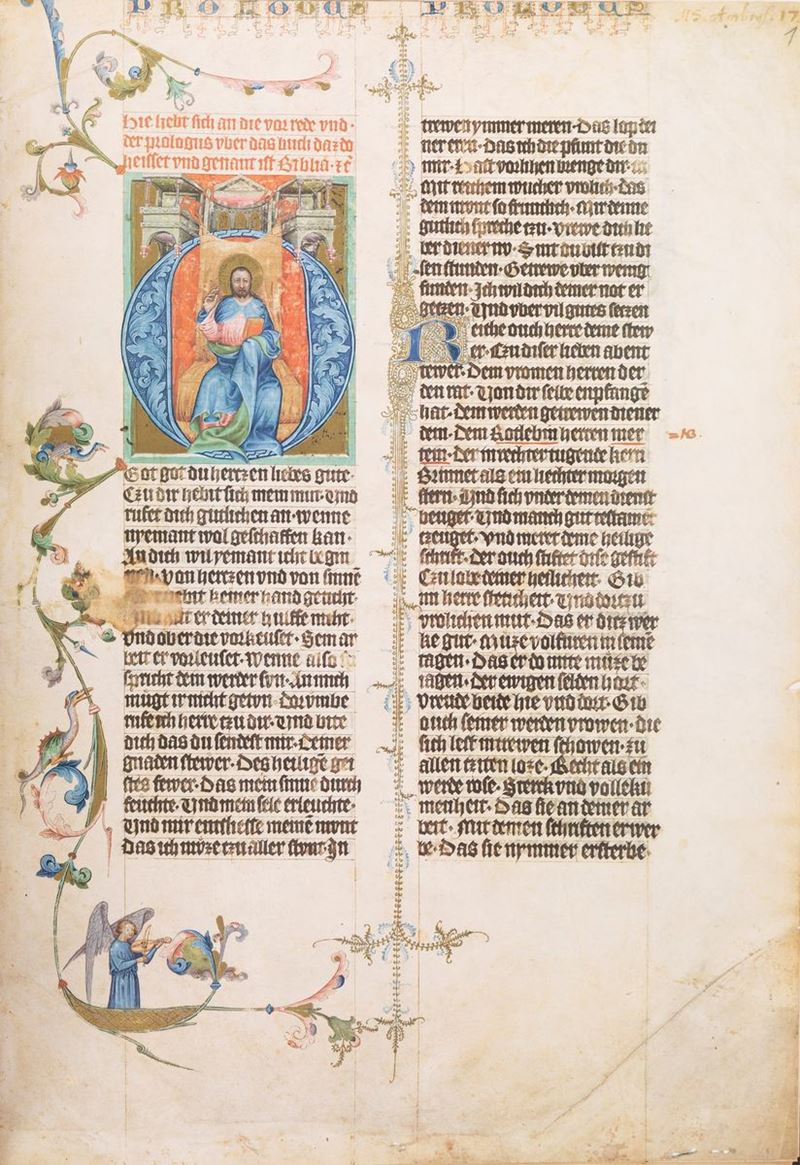 PROLOGUS PROLOGUS
MS Ambras. 17
1
Hie hebt sich an die vor rede vnd·
der prologus vber das buch daz do
heisset vnd genant ist Biblia·
Got got du hertzen liebes gute·
Czu dir hebit sich mein mut· Vnd
rufet dich gutlichen an· wenne
nyemant wol geschaffen kan·
An dich wil yemant icht begin
von hertzen vnd von sinnē
keiner hand geticht·
er deiner hulffe nicht·
vnd ob er die vorkeuset· Sein ar
beit er vorleuset· Wenne also
spricht dein werder son· An mich
mügt ir nicht getun· Dorvmbe
ruf ich herre tzu dir· Vnd bite
dich das du sendest mir· Deiner
gnaden stewer· Des heiligē gei
stes fewer· Das mein sinne durch
feuchte· Vnd mein sele erleuchte·
Vnd mir entsliesse meinē mvnt
Das ich müze tzu aller stvnt· In
trewen ymmer meren· Das lop dei
ner eren· Das ich die pfunt die du
mir· Hast vorlihen brenge dir·
Mit reichem wucher vrolich· Das
dein mvnt so fruntlich· Mir denne
gutlich spreche tzu· Vrewe dich lie
ber diener nv· Sint du bist tzu di
sen stunden· Getrewe vber wenig
funden· Ich wil dich deiner not er
getzen· Vnd vber vil gutes setzen
Reiche ouch herre deine stew
er· Czu diser lieben abent
tewer· Dem vromen herren der
den rat· Von dir selbe enpfangē
hat· Dem werden getrewen diener
dein· Dem Rotlebin herren mer
tein· Der in rechter tugende kern
Brinnet als ein liechter morgen
stern· Vnd sich vnder deinen dienst
beuget· Vnd manch gut testament
tzeuget· vnd meret deine heilige
schrift· Der ouch stiftet dise gestift
Czu lobe deiner heilicheit· Gib
im herre steticheit· Vnd dortzu
vrolichen mut· Das er ditz wer
ke gut· Müze volfuren in seinē
tagen· Das er do mite müze be
iagen· Der ewigen selden hort·
Vreude beide hie vnd dort· Gib
ouch seiner werden vrowen· die
sich lest in trewen schowen· Zu
allen tziten loze· Recht als ein
werde rose· Sterck vnd volleku
menheit· Das sie an deiner ar
beit· Mit deinen schriften erwer
be· Das sie nymmer ersterbe·